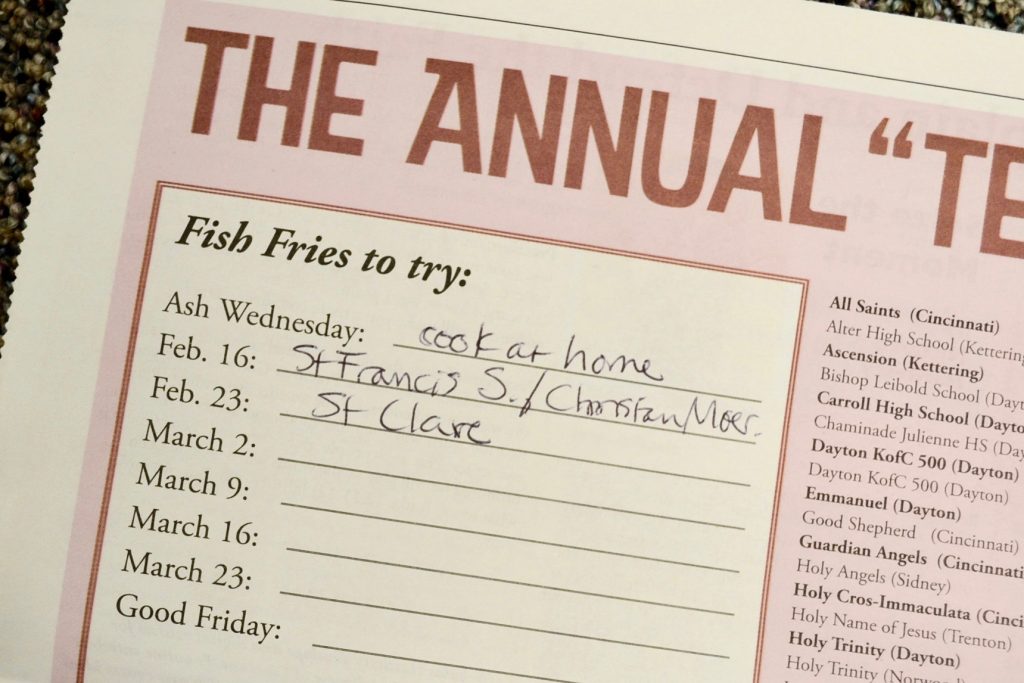 THE ANNUAL “TE
Fish Fries to try:
Ash Wednesday: cook at home
Feb. 16: St Francis S./Christian Moer.
Feb. 23: St Clare
March 2:
March 9:
March 16:
March 23:
Good Friday:
All Saints (Cincinnati)
Alter High School (Kettering
Ascension (Kettering)
Bishop Leibold School (Dayt
Carroll High School (Dayto
Chaminade Julienne HS (Day
Dayton KofC 500 (Dayton)
Dayton KofC 500 (Dayton)
Emmanuel (Dayton)
Good Shepherd (Cincinnati)
Guardian Angels (Cincinnati
Holy Angels (Sidney)
Holy Cros-Immaculata (Cinci
Holy Name of Jesus (Trenton)
Holy Trinity (Dayton)
Holy Trinity (Norwood